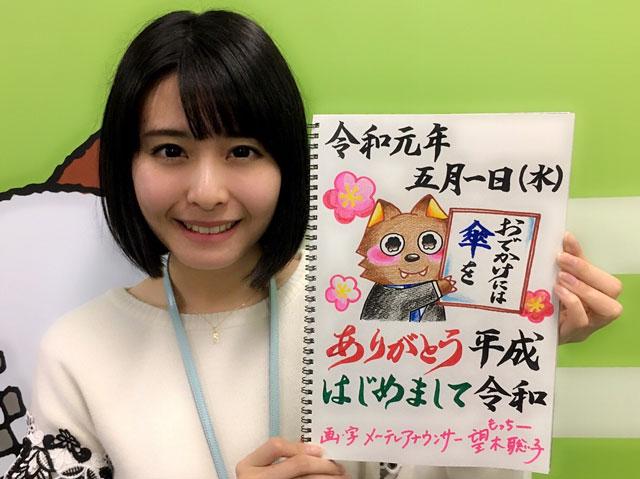 令和元年
五月一日(水)
おでかけには
傘を
ありがとう平成
はじめまして令和
もっちー
画・字 メ〜テレアナウンサー 望木聡子